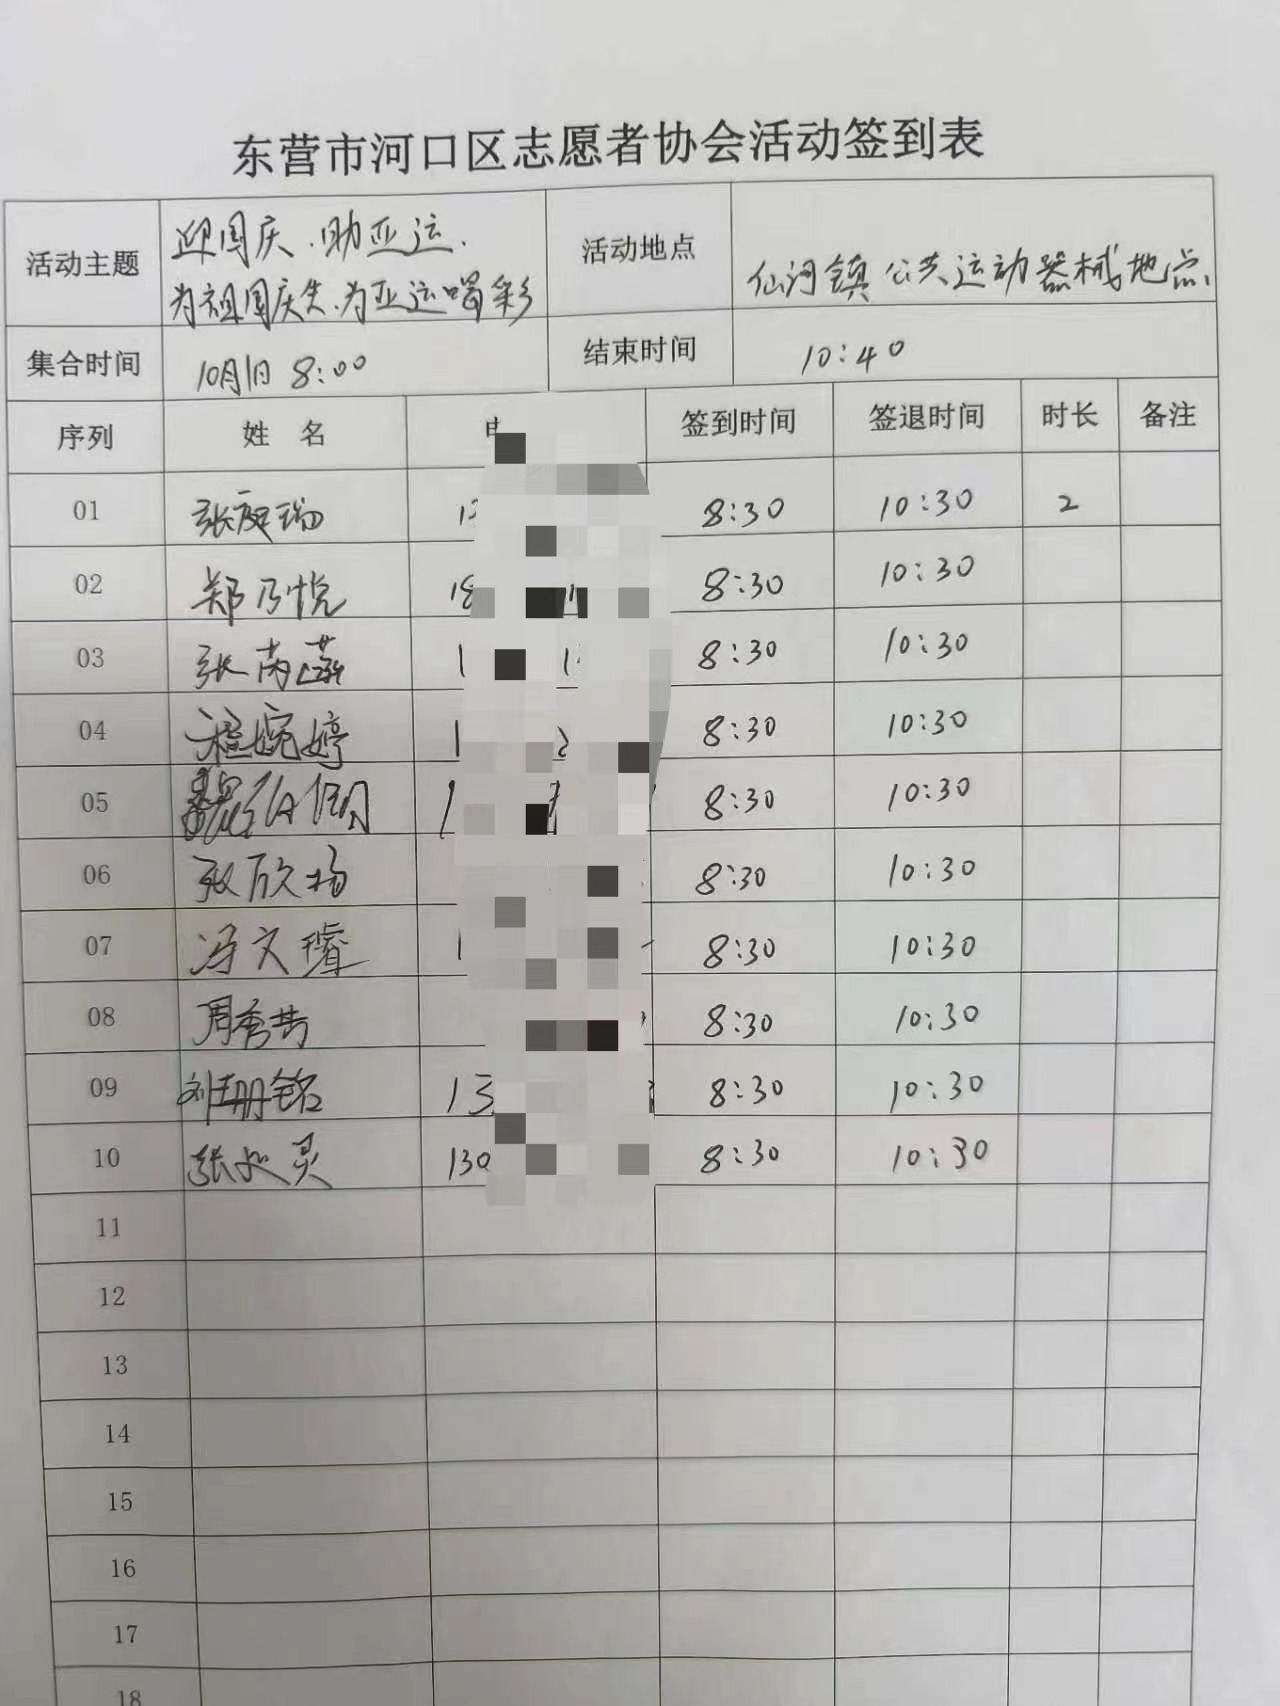 东营市河口区志愿者协会活动签到表
活动主题 迎国庆.助亚运. 活动地点 仙河镇公共运动器械地点
为祖国庆生.为亚运喝彩
集合时间 10月1日 8:00 结束时间 10:40
序列 姓 名 签到时间 签退时间 时长 备注
01 张庭瑞 8:30 10:30 2
02 郑乃悦 18 8:30 10:30
03 张芮菡 1 8:30 10:30
04 程婉婷 1 8:30 10:30
05 8:30 10:30
06 张欣杨 8:30 10:30
07 冯文璿 1 8:30 10:30
08 周秀芸 8:30 10:30
09 刘珊铭 13 8:30 10:30
10 张 灵 130 8:30 10:30
11
12
13
14
15
16
17
18